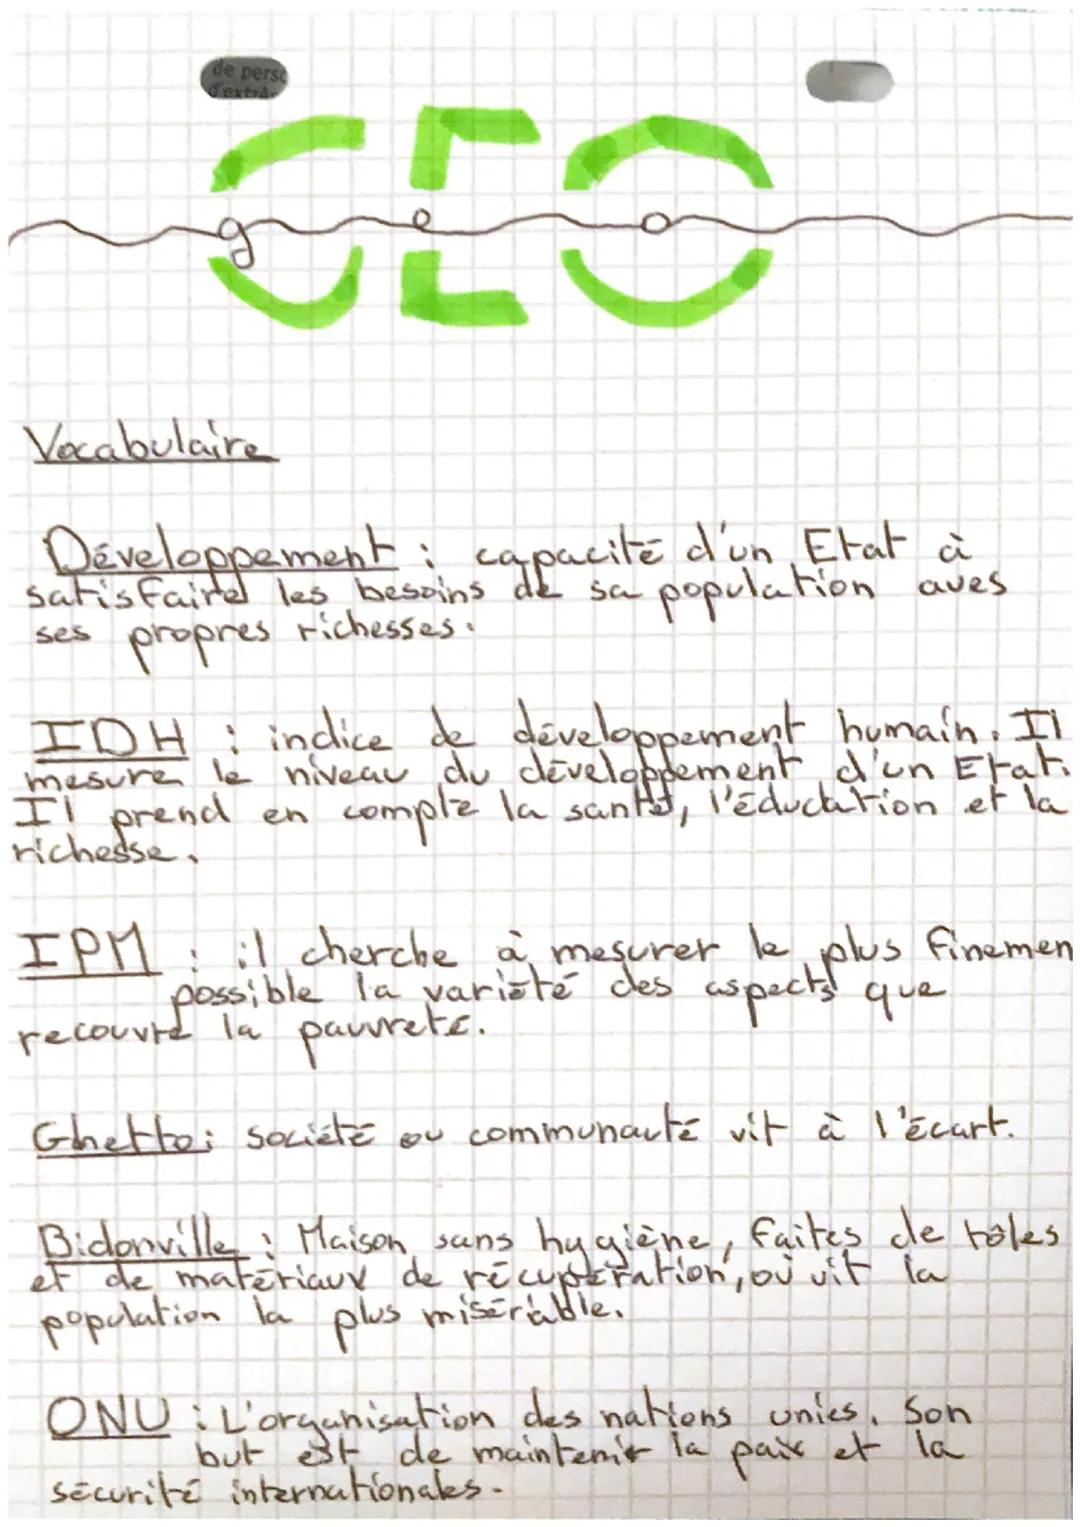 de perso
d'extra-
GEO
geo
Vocabulaire
Développement : capacité d'un Etat à
satisfaire les besoins de sa population aves
ses propres richesses.
IDH : indice de développement humain. Il
mesure le niveau du développement d'un Etat.
Il prend en compte la santé, l'éducation et la
richesse.
IPM : il cherche à mesurer le plus finemen
possible la variété des aspects que
recouvre la pauvreté.
Ghetto : société ou communauté vit à l'écart.
Bidonville : Maison sans hygiène, faites de tôles
et de matériaux de récupération, où vit la
population la plus misérable.
ONU : L'organisation des nations unies. Son
but est de maintenir la paix et la
sécurité internationales.